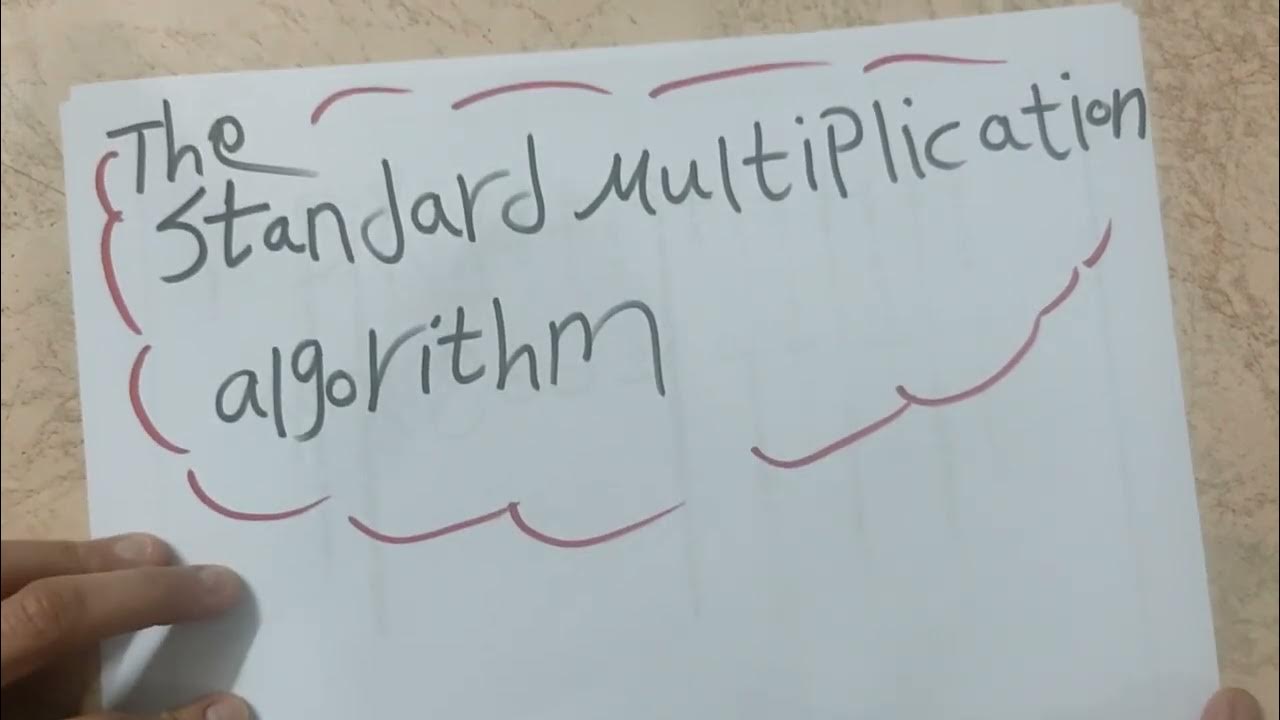 The
Standard Multiplication
algorithm